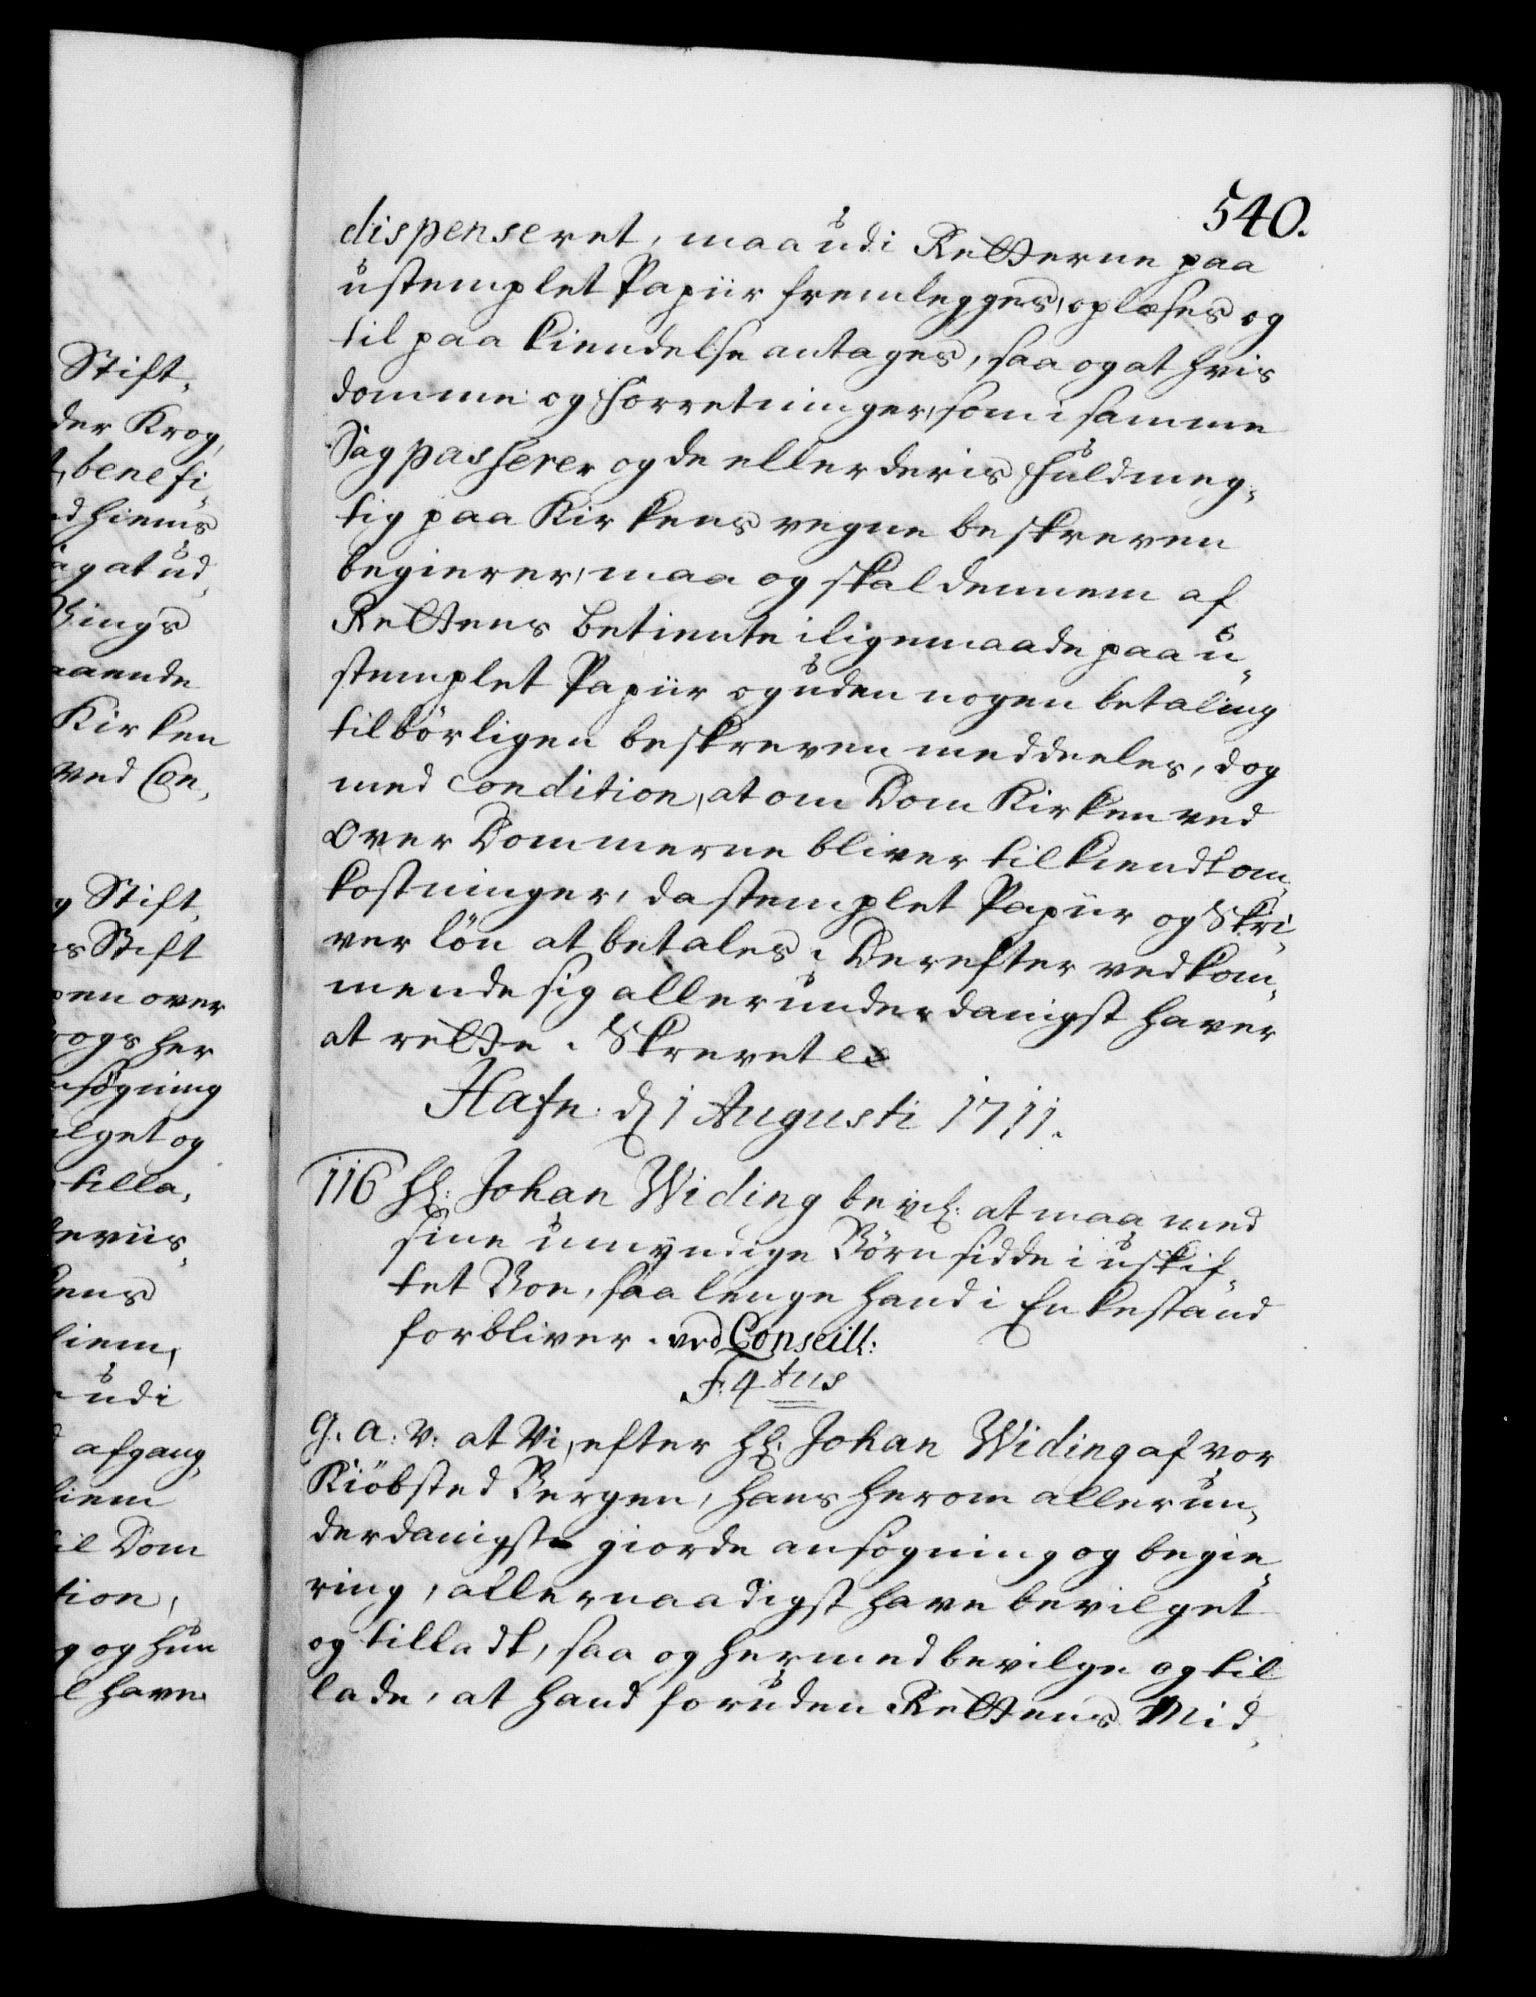 Stift,
der Krog,
t, benefi
d hiems
ag at ud,
things
aaende
Kirken
ved Con,
g Stift,
s Stift
pen over
rogs her
nsøgning
ilget og
tilla,
eviis,
kens
hiem,
udi
afgang,
hiem
il Dom
tion,
g og hun
l have
540.
dispenseret, maa udi Retterne paa
ustemplet Papiir fremlegges, oplæses og
til paa kiendelse antages, saa og at hvis
domme og Forretninger, som i samme
Sag passerer og de eller deris Fuldmeg,
tig paa Kirkens vegne beskreven
begierer, maa og skal dennem af
Rettens betiente i ligemaade paa u,
stemplet Papiir og uden nogen betaling
tilbörligen beskreven meddeeles, dog
med Condition, at om Dom Kirken ved
Over Dommerne bliver tilkiendt om,
kostninger, da stemplet Papiir og Skri,
ver lön at betales; Derefter vedkom,
mende sig allerunderdanigst haver
at rette. Skrevet etc
Hafn. d. 1 Augusti 1711.
116 Hr: Johan Widing bevl: at maa med
sine umyndige Börn sidde i uskif,
tet Boe, saa lenge hand i Enkestand
forbliver. ved Conseill:
F. 4tus
G. A: V: at Vi, efter Hr: Johan Widing af vor
Kiöbsted Bergen, hans herom allerun,
derdanigste giorde ansøgning og begie,
ring, allernaadigst have bevilget
og tilladt, saa og hermed bevilge og til
lade, at hand foruden Rettens Mid,